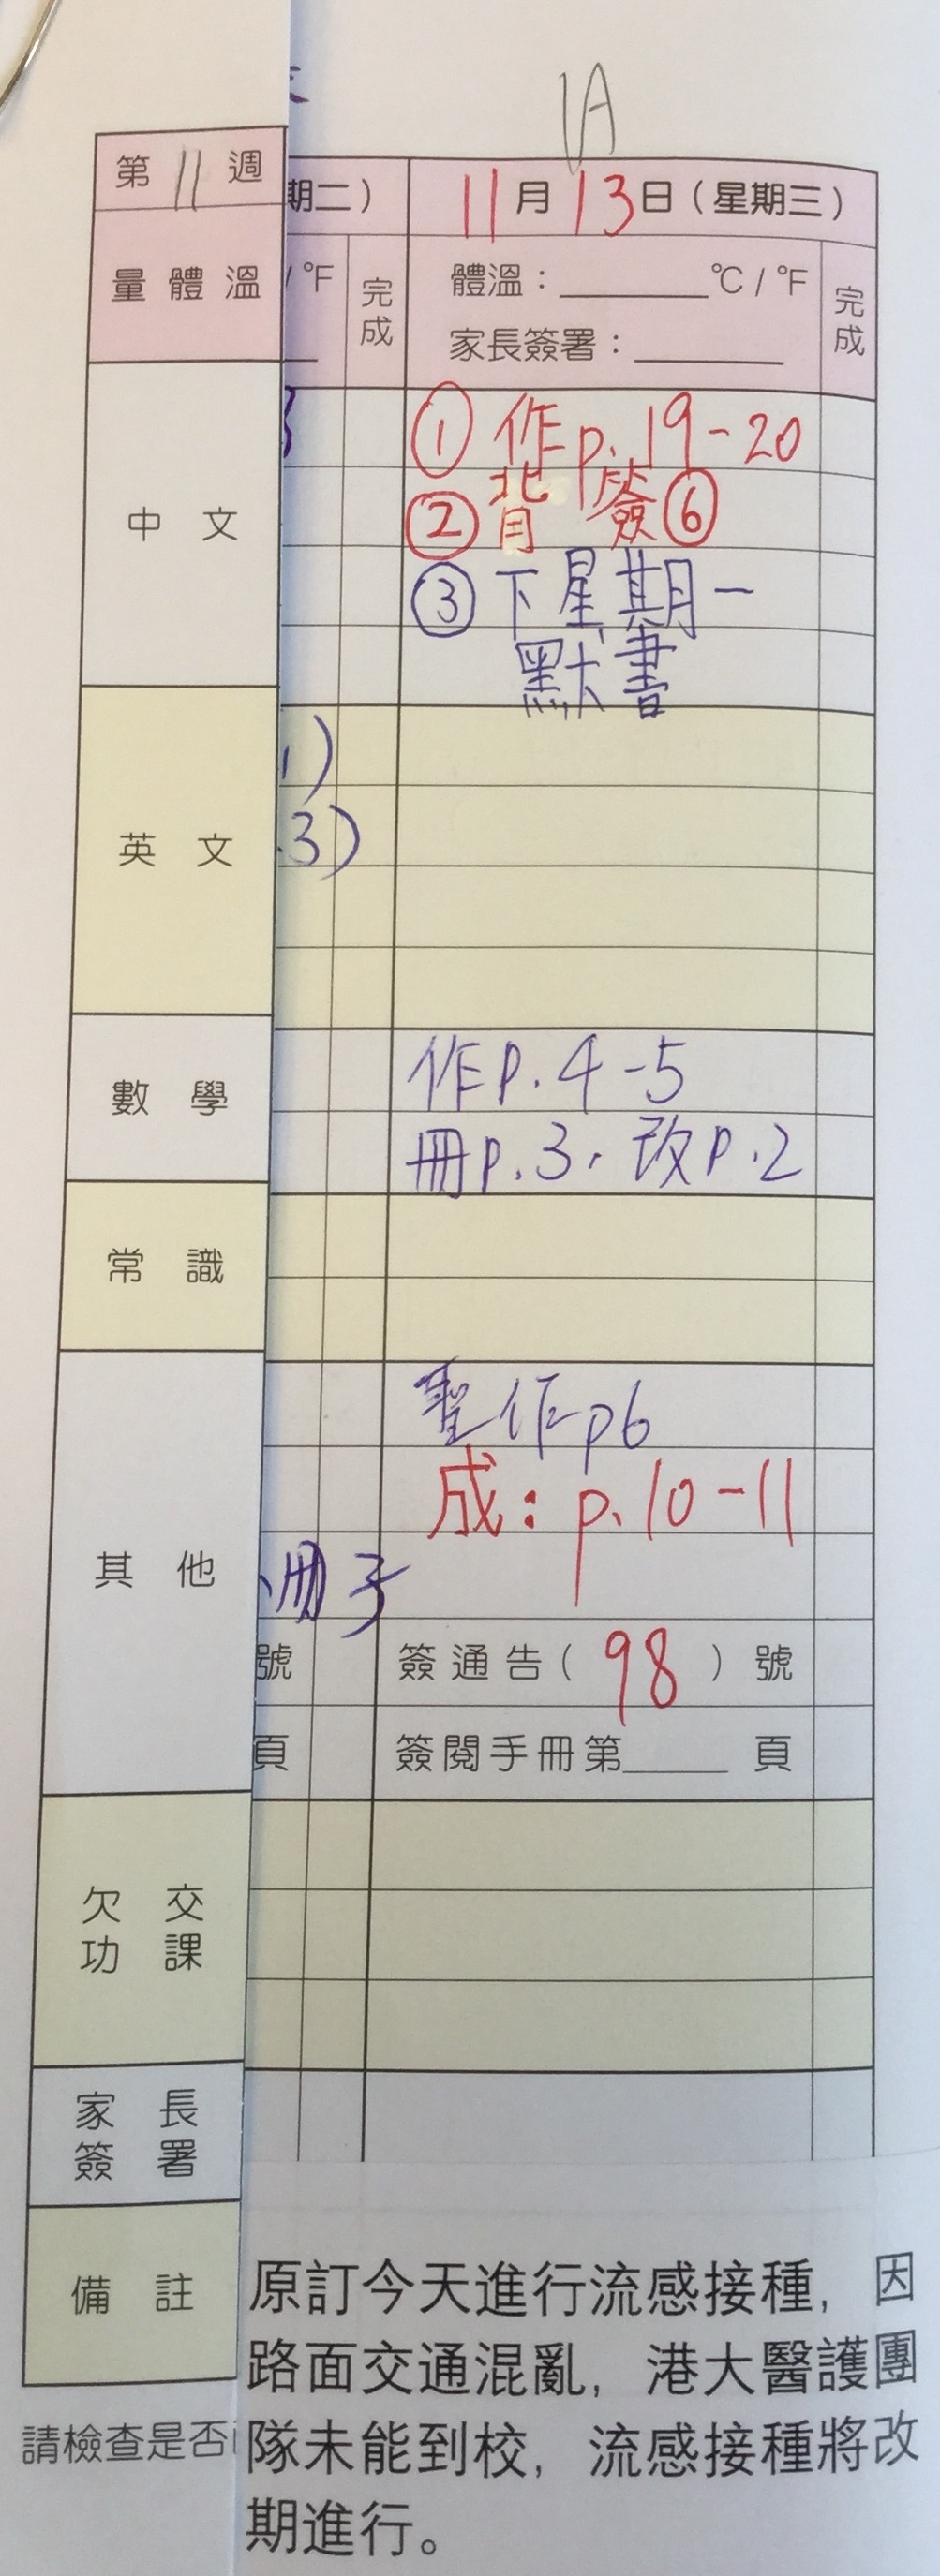 1A
第 11 週
期二）
11月13日（星期三）
量體溫
/ ℉
完成
體溫：______℃ / ℉
家長簽署：______
完成
中文
① 作p.19-20
② 背 簽⑥
③ 下星期一
默書
英文
1)
.3)
數學
作p.4-5
冊p.3，改p.2
常識
其他
聖作p6
成：p.10-11
冊子
號
簽通告（ 98 ）號
頁
簽閱手冊第______頁
欠交
功課
家長
簽署
備註
原訂今天進行流感接種，因
路面交通混亂，港大醫護團
隊未能到校，流感接種將改
期進行。
請檢查是否